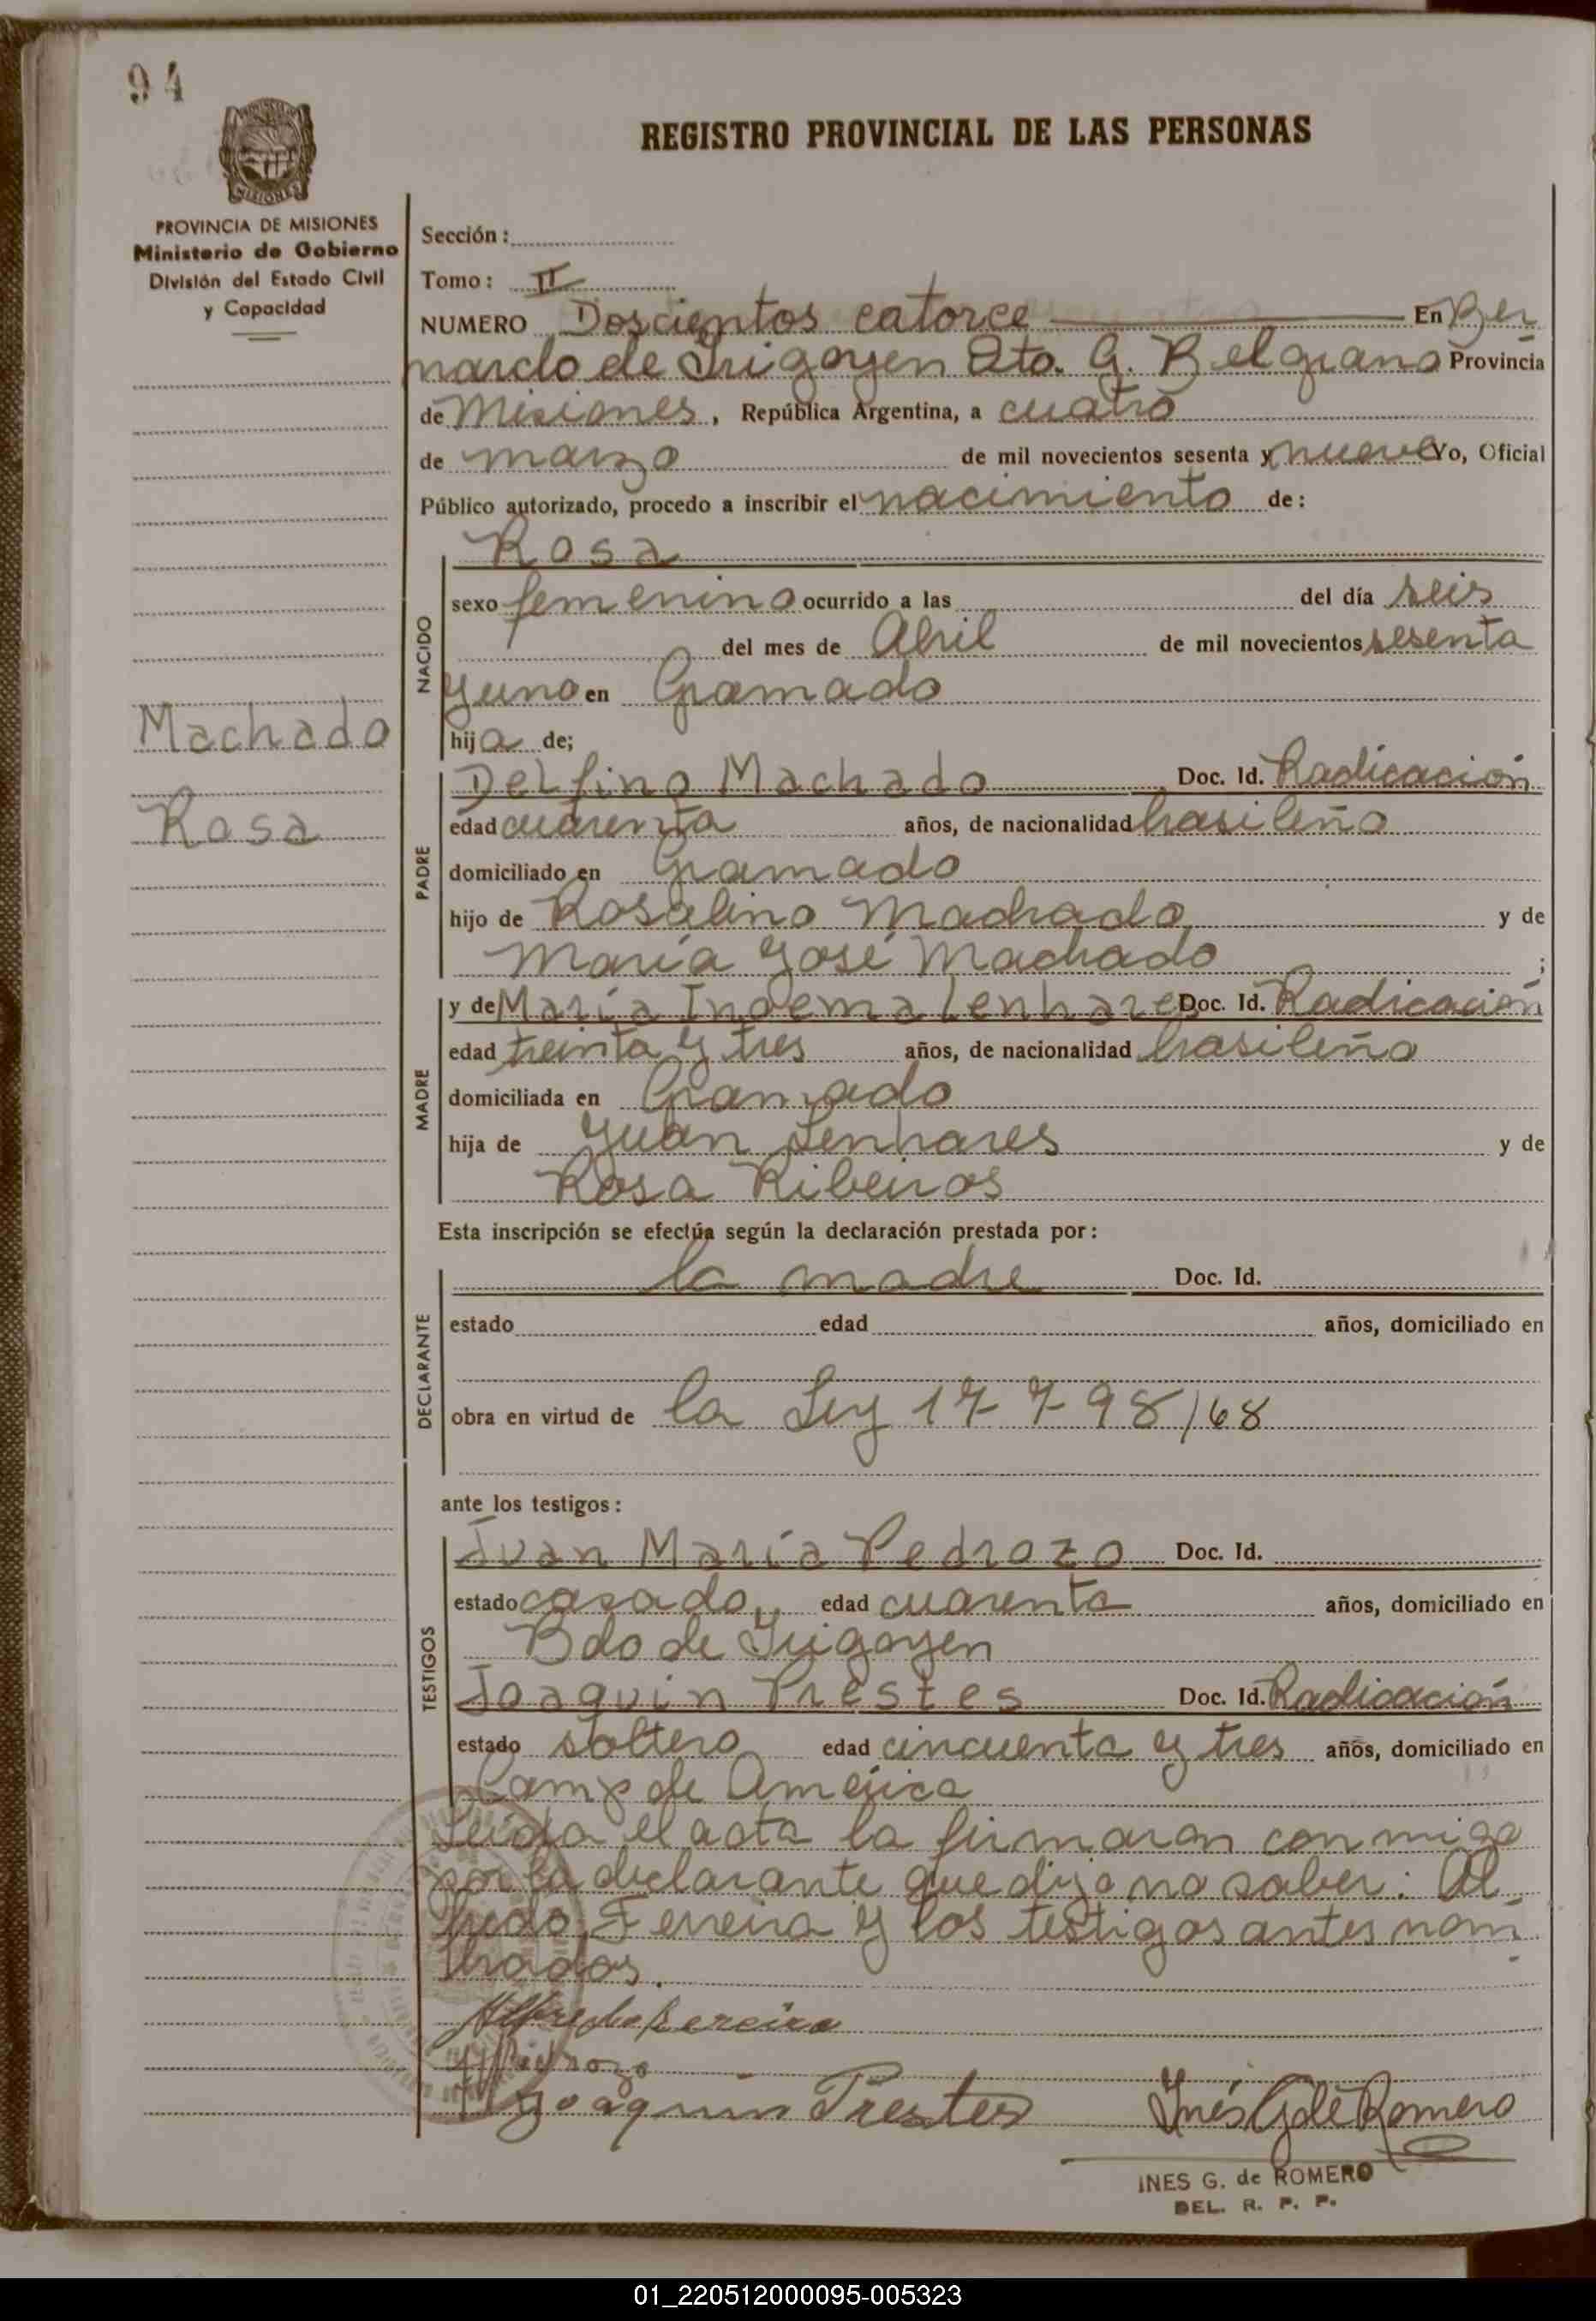 94
REGISTRO PROVINCIAL DE LAS PERSONAS
MISIONES
PROVINCIA DE MISIONES
Ministerio de Gobierno
División del Estado Civil
y Capacidad
Machado
Rosa
Sección:
Tomo: II
NUMERO Doscientos catorce En Ber
nardo de Irigoyen Dto. G. Belgrano Provincia
de Misiones, República Argentina, a cuatro
de marzo de mil novecientos sesenta y nueve Yo, Oficial
Público autorizado, procedo a inscribir el nacimiento de:
NACIDO
Rosa
sexo femenino ocurrido a las del día seis
del mes de Abril de mil novecientos sesenta
y uno en Gramado
hija de;
PADRE
Delfino Machado Doc. Id. Radicación
edad cuarenta años, de nacionalidad brasileño
domiciliado en Gramado
hijo de Rosalino Machado y de
María José Machado ;
MADRE
y de María Inoema Lenhares Doc. Id. Radicación
edad treinta y tres años, de nacionalidad brasileña
domiciliada en Gramado
hija de Juan Lenhares y de
Rosa Ribeiros
Esta inscripción se efectúa según la declaración prestada por:
DECLARANTE
la madre Doc. Id.
estado edad años, domiciliado en
obra en virtud de la Ley 17798/68
ante los testigos:
TESTIGOS
Juan María Pedrozo Doc. Id.
estado casado, edad cuarenta años, domiciliado en
Bdo de Irigoyen
Joaquin Prestes Doc. Id. Radicación
estado soltero edad cincuenta y tres años, domiciliado en
Camp de América
Leida el acta la firmaran conmigo
por la declarante que dijo no saber: Al
fredo Ferreira y los testigos antes nom
brados.
Alfredo Fereira
Pedrozo
Joaquin Prestes Inés G de Romero
INES G. de ROMERO
DEL. R. P. P.
01_220512000095-005323